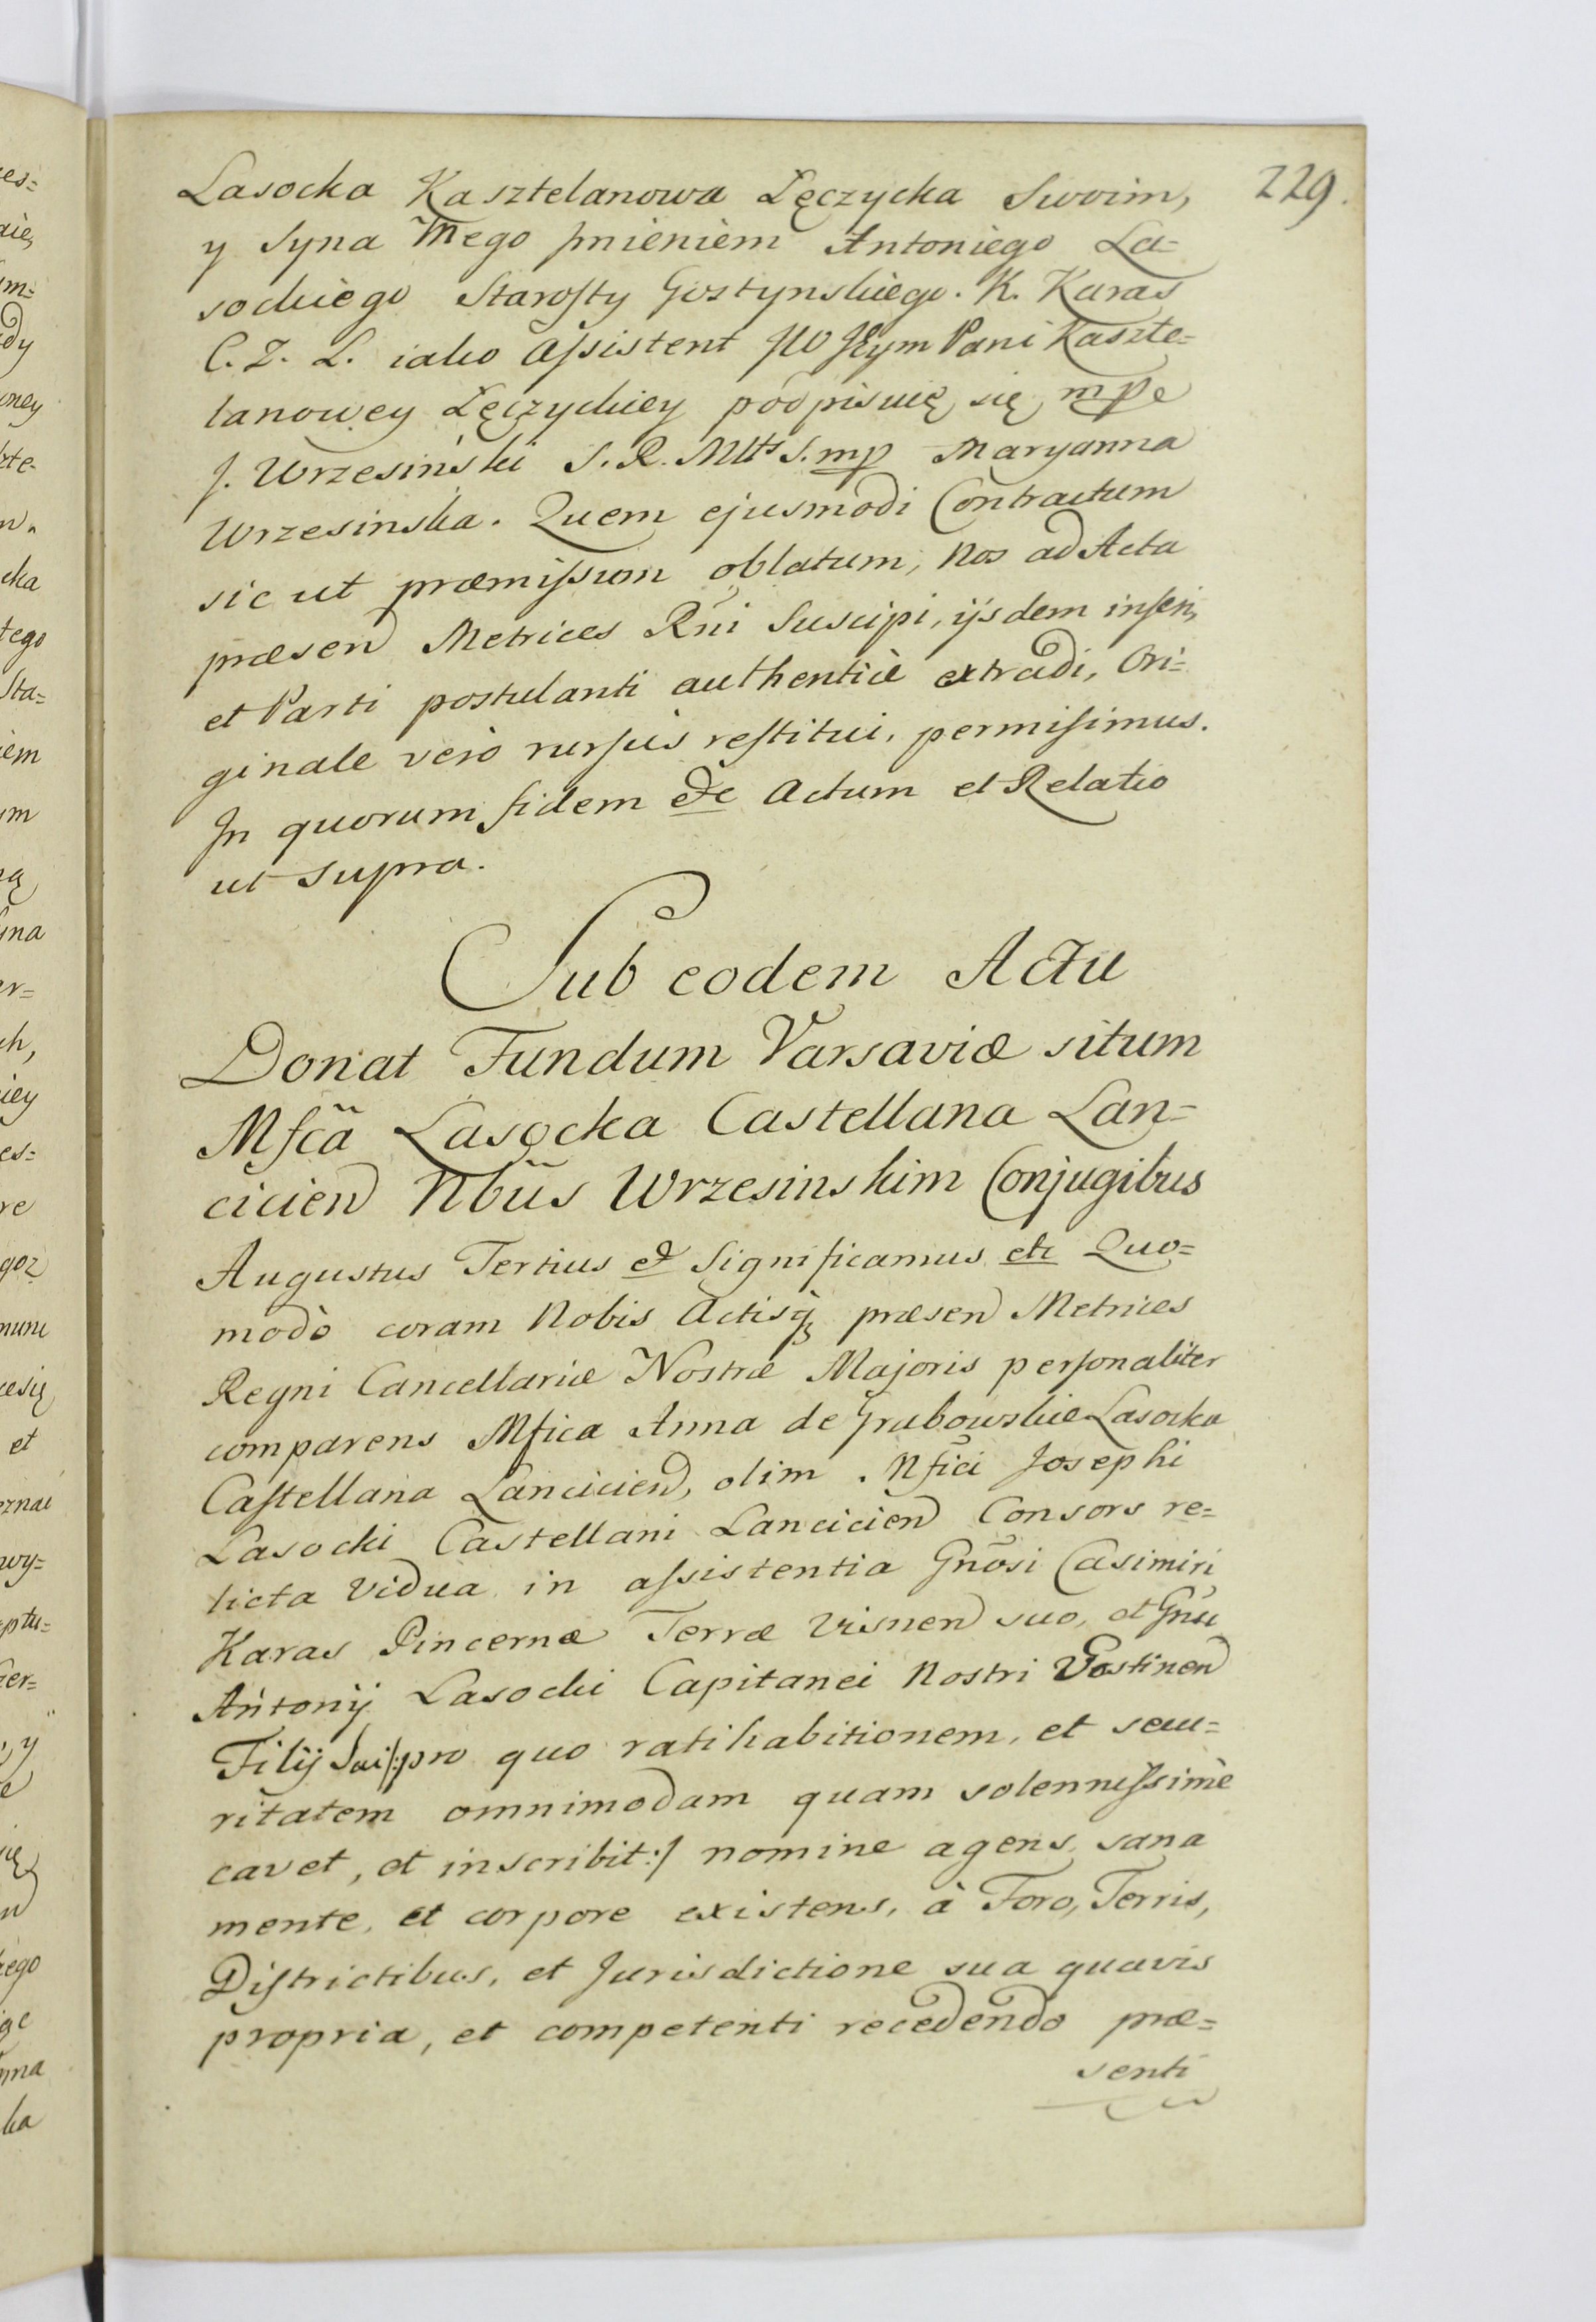 229.
Lasocka Kasztelanowa Łęczycka Swoim,
y Syna Mego Imieniem Antoniego La=
sockiego Starosty Gostynskiego. K. Karas
C. Z. L. iako Assistent JW JEym Pani Kaszte=
lanowey Łęczyckiey podpisuię się mpe
J. Wrzesiński S. R. Mtts S. mp Maryanna
Wrzesinska. Quem ejusmodi Contractum
sic ut præmissum oblatum, Nos ad Acta
præsen Metrices Rñi Suscipi, ijsdem inseri,
et Parti postulanti authenticè extradi, Ori=
ginale verò rursùs restitui, permisimus.
In quorum fidem &c Actum et Relatio
ut supra.
Sub eodem Actu
Donat Fundum Varsaviæ situm
Mfcã Lasocka Castellana Lan=
cicien Nbũs Wrzesinskim Conjugibus
Augustus Tertius & Significamus etc Quo=
modò coram Nobis Actisq̃ præsen Metrices
Regni Cancellariæ Nostræ Majoris personaliter
comparens Mfica Anna de Grabowskie Lasocka
Castellana Lancicien, olim Mfici Josephi
Lasocki Castellani Lancicien Consors re=
licta Vidua in assistentia Gñosi Casimiri
Karas Pincernæ Terræ Visnen suo, et Gñsi
Antonij Lasocki Capitanei Nostri Gostinen
Filij Sui/:pro quo ratihabitionem, et secu=
ritatem omnimodam quam solennissimè
cavet, et inscribit:/ nomine agens, sana
mente, et corpore existens, à Foro, Terris,
Districtibus, et Jurisdictione sua quavis
propria, et competenti recedendo præ=
senti